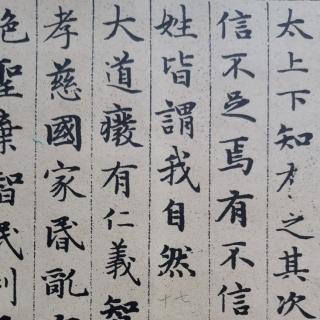 太上下知有之其次
信不足焉有不信
姓皆謂我自然
十七
大道癈有仁義智
孝慈國家昬亂
聖棄智民利